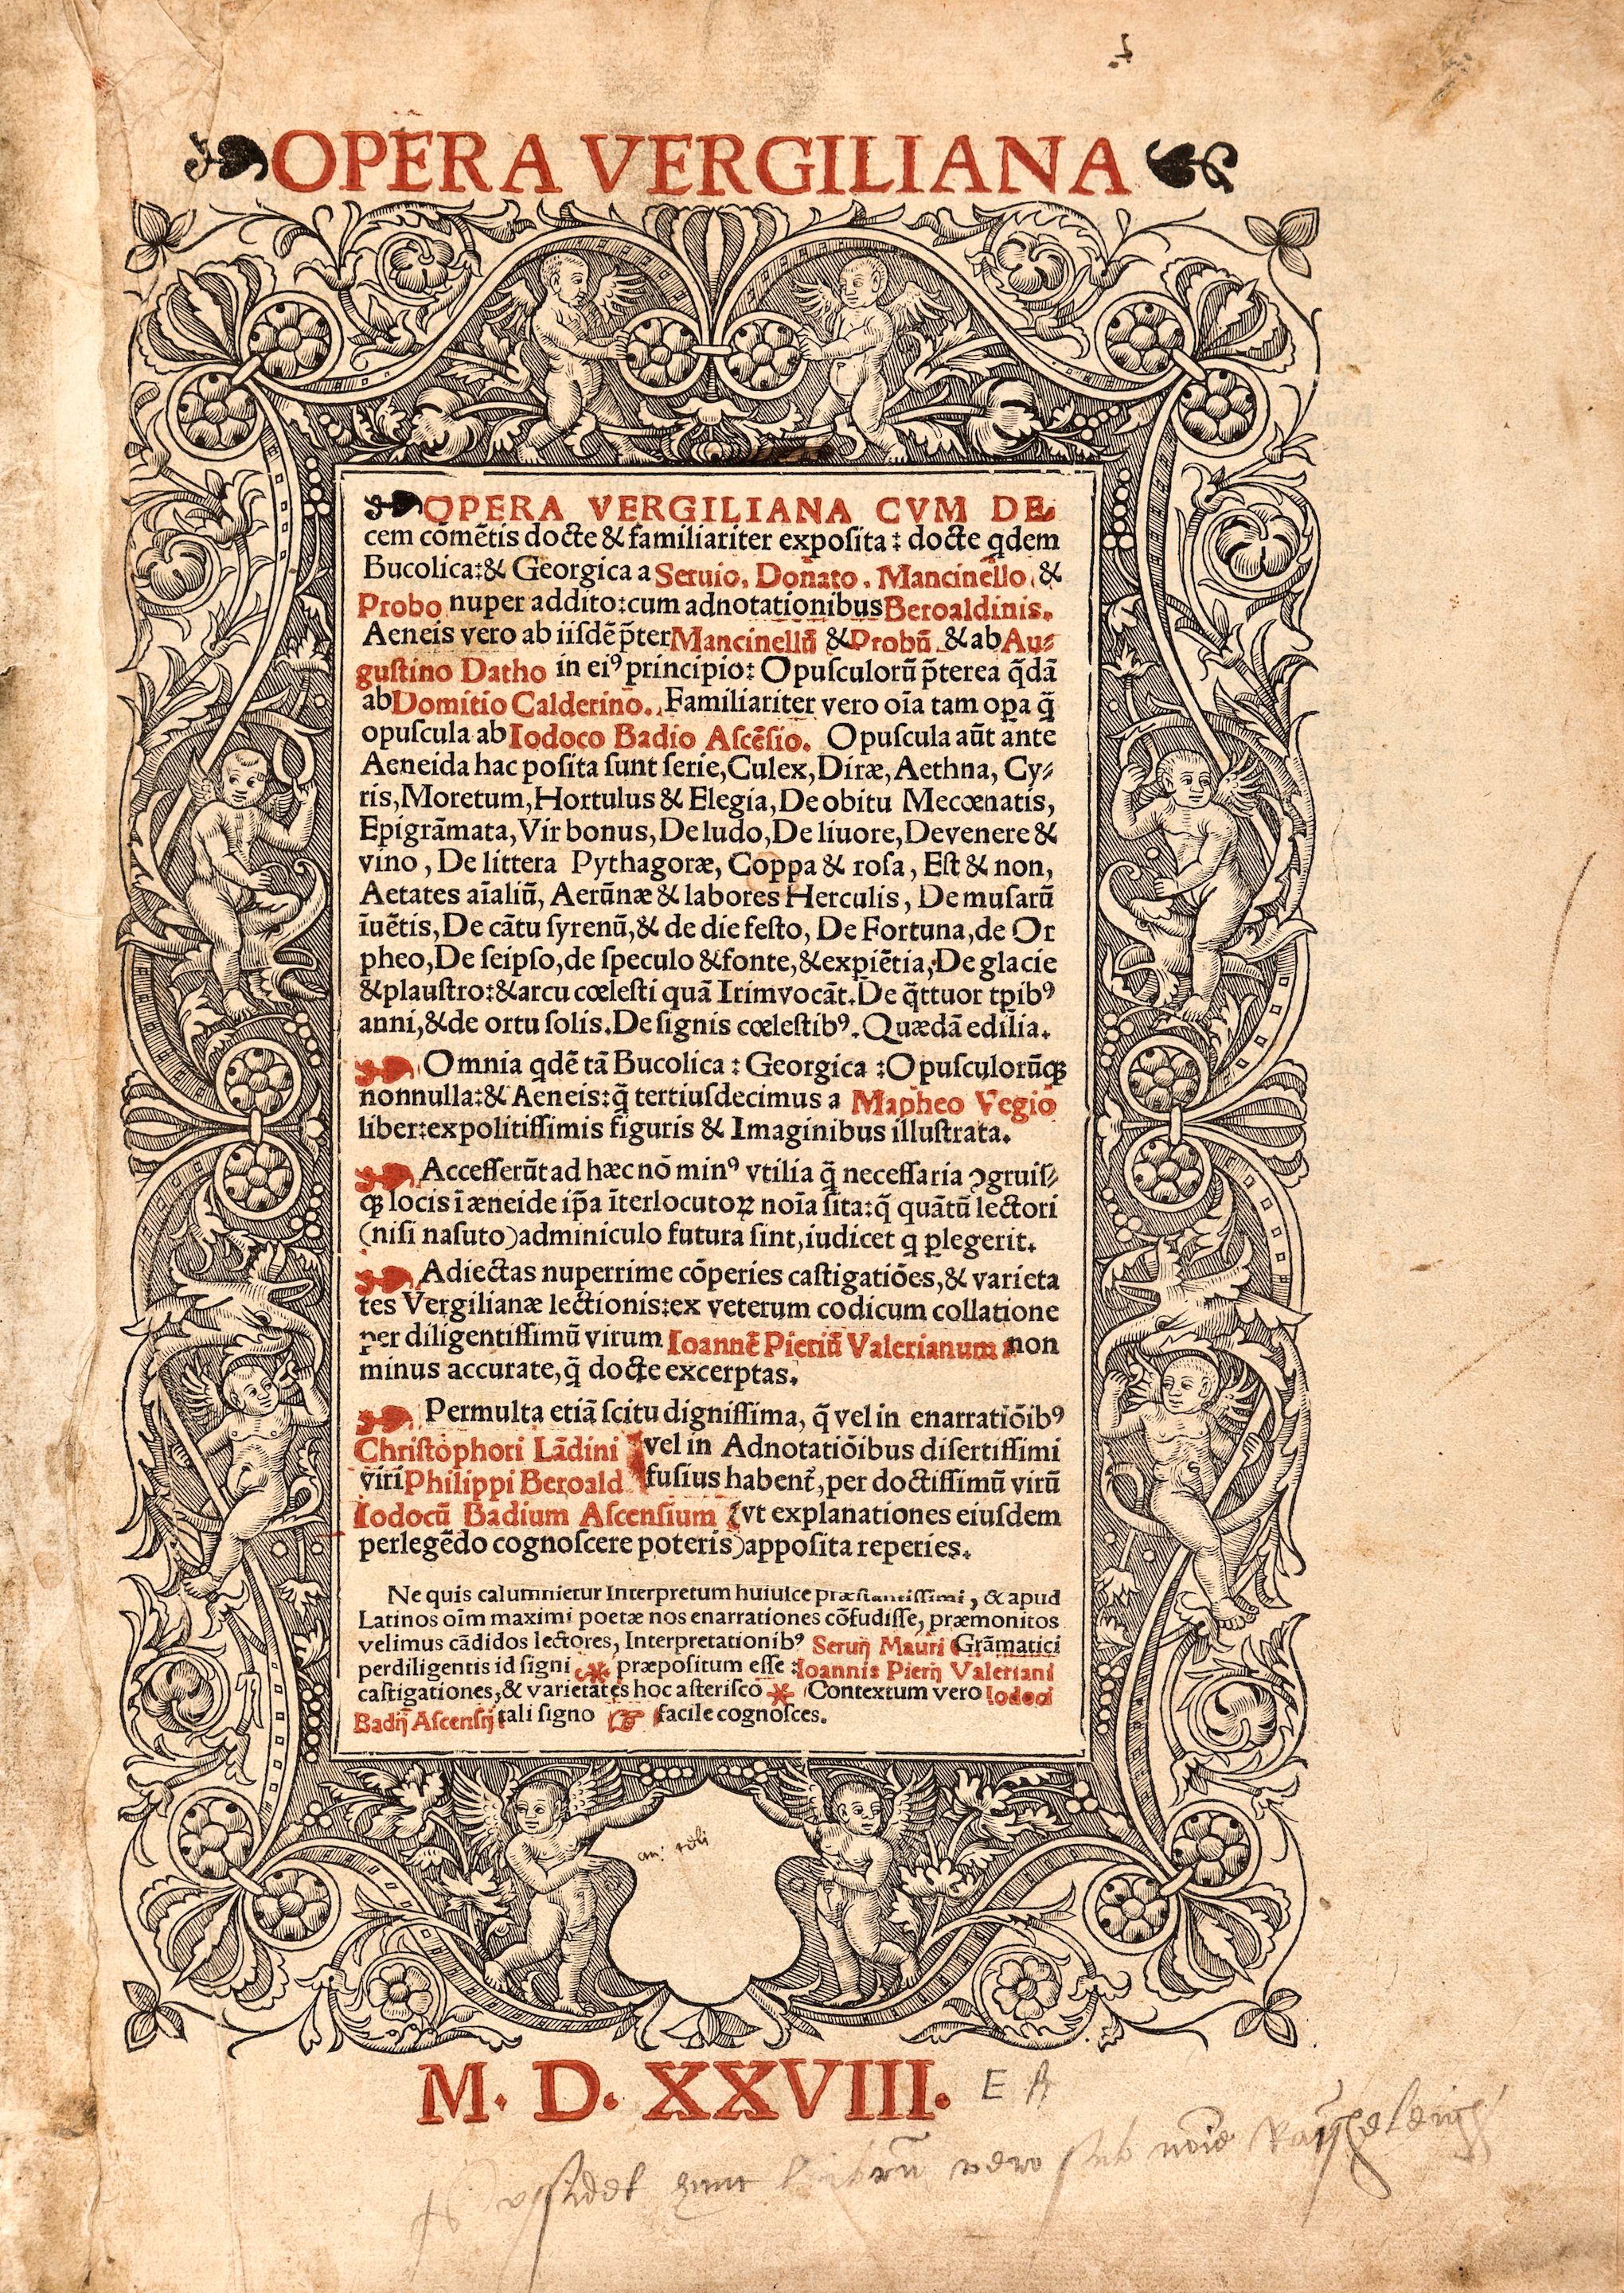 OPERA VERGILIANA
OPERA VERGILIANA CVM DE⸗
cem cōmētis docte & familiariter exposita: docte qdem
Bucolica:& Georgica a Seruio, Donato, Mancinello, &
Probo nuper addito:cum adnotationibus Beroaldinis.
Aeneis vero ab iisdē p̄ter Mancinellū & Probū, & ab Au⸗
gustino Datho in eiꝰ principio: Opusculorū p̄terea q̄dā
ab Domitio Calderino. Familiariter vero oīa tam oꝑa q̄
opuscula ab Iodoco Badio Ascēsio. Opuscula aūt ante
Aeneida hac posita sunt serie, Culex, Diræ, Aethna, Cy⸗
ris, Moretum, Hortulus & Elegia, De obitu Mecœnatis,
Epigrāmata, Vir bonus, De ludo, De liuore, De venere &
vino, De littera Pythagoræ, Coppa & rosa, Est & non,
Aetates aīaliū, Aerūnæ & labores Herculis, De musarū
īuētis, De cātu syrenū, & de die festo, De Fortuna, de Or
pheo, De seipso, de speculo & fonte, & expiētia, De glacie
& plaustro:& arcu cœlesti quā Irim vocāt. De q̄ttuor tp̄ibꝰ
anni, & de ortu solis. De signis cœlestibꝰ. Quædā edilia.
Omnia qdē tā Bucolica: Georgica: Opusculorūqꝫ
nonnulla:& Aeneis: q̄ tertiusdecimus a Mapheo Vegio
liber: expolitissimis figuris & Imaginibus illustrata.
Accesserūt ad hæc nō minꝰ vtilia q̄ necessaria ꝯgruis⸗
qꝫ locis ī æneide ip̄a īterlocutoꝝ noīa sita: q̄ quātū lectori
(nisi nasuto) adminiculo futura sint, iudicet q ꝑlegerit.
Adiectas nuperrime cōperies castigatiōes, & varieta
tes Vergilianæ lectionis: ex veterum codicum collatione
per diligentissimū virum Ioannē Pieriū Valerianum non
minus accurate, q̄ docte excerptas.
Permulta etiā scitu dignissima, q̄ vel in enarratiōibꝰ
Christophori Lādini vel in Adnotatiōibus disertissimi
viri Philippi Beroald fusius habent̄, per doctissimū virū
Iodocū Badium Ascensium (vt explanationes eiusdem
perlegēdo cognoscere poteris) apposita reperies.
Ne quis calumnietur Interpretum huiusce præstantissimi, & apud
Latinos oīm maximi poetæ nos enarrationes cōfudisse, præmonitos
velimus cādidos lectores, Interpretationibꝰ Seruij Mauri Grāmatici
perdiligentis id signi præpositum esse: Ioannis Pierij Valeriani
castigationes, & varietates hoc asterisco * Contextum vero Iodoci
Badij Ascensij tali signo ☞ facile cognosces.
M. D. XXVIII. E A